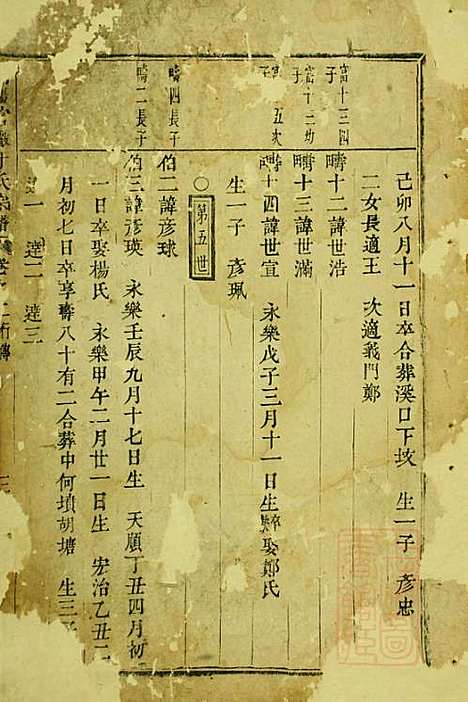 己卯八月十一日卒合葬溪口下坂 生一子 彦忠
二女長適王 次適義門鄭
富十三四子
疇十二諱世浩
富十三幼子
疇十三諱世滿
五次子
疇十四諱世宣 永樂戊子三月十一日生 卒 娶鄭氏
生一子 彦珮
○第五世
疇四長子
伯二諱彦球
疇二長子
伯三諱彦瑛 永樂壬辰九月十七日生 天順丁丑四月初
一日卒娶楊氏 永樂甲午二月廿一日生 宏治乙丑二
月初七日卒享壽八十有二合葬中何墳胡塘 生三子
達一 達二 達三